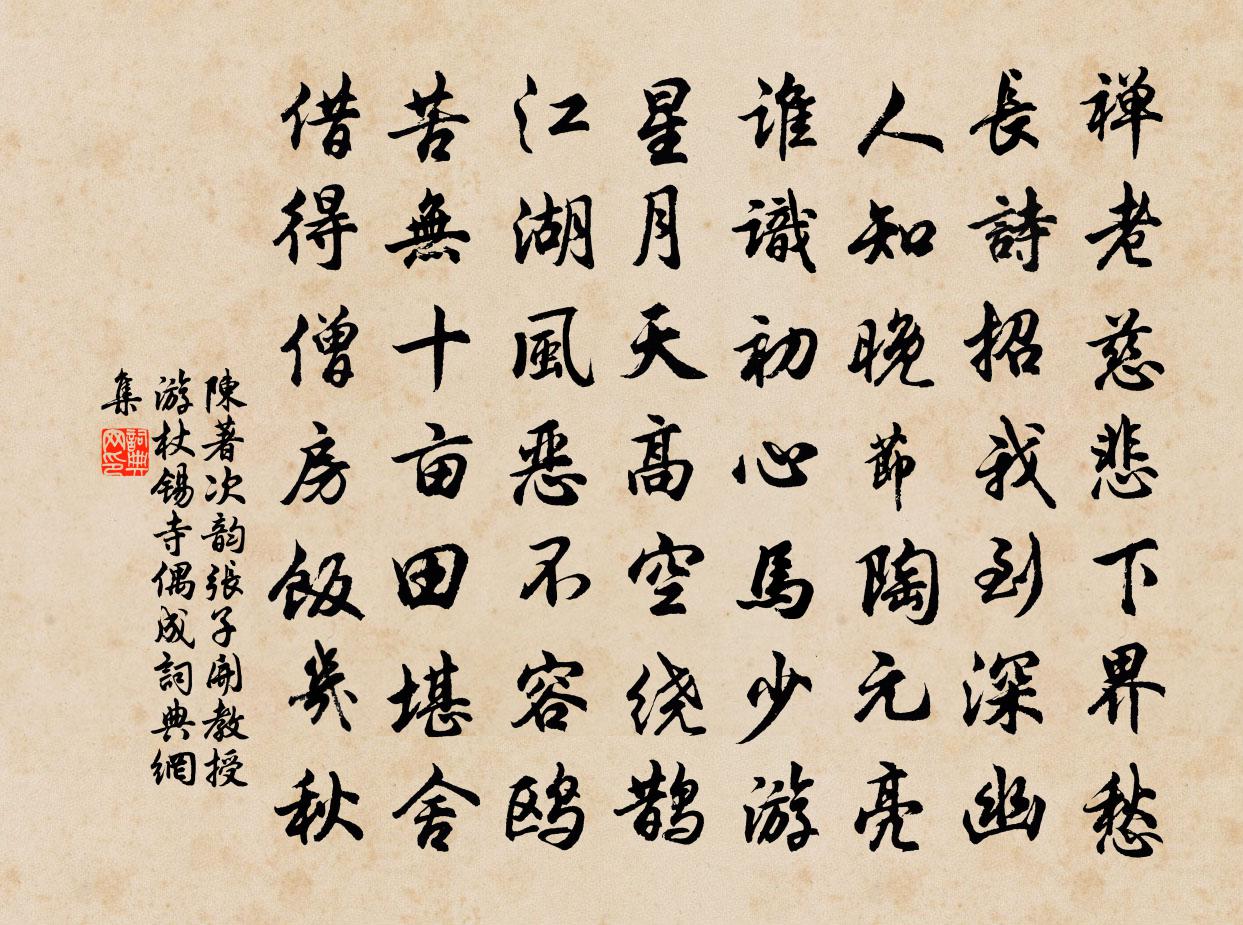 禅老慈悲下界愁
長詩招我到深幽
人知晚節陶元亮
谁識初心馬少游
星月天高空绕鵲
江湖風惡不容鸥
苦無十亩田堪舍
借得僧房飯幾秋
陳著次韵張子開教授
游杖锡寺偶成詞典網
集
詞典网印